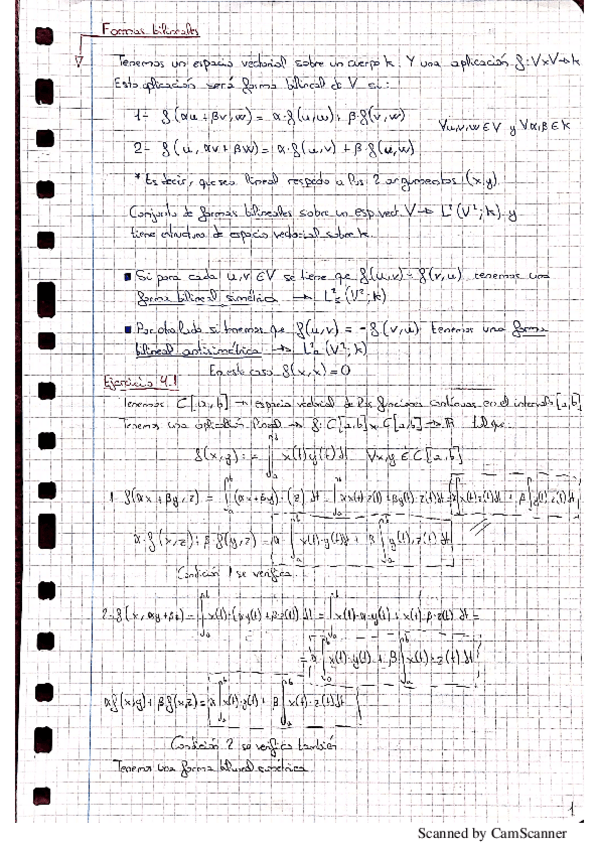 Formas bilineales
Tenemos un espacio vectorial sobre un cuerpo k. Y una aplicación f: V×V→k
Esta aplicación será forma bilineal de V si:
1- f(αu+βv,w) = α·f(u,w)+β·f(v,w)
∀u,v,w∈V y ∀α,β∈k
2- f(u,αv+βw) = α·f(u,v)+β·f(u,w)
* Es decir, que sea lineal respecto a los 2 argumentos (x,y).
Conjunto de formas bilineales sobre un esp.vect. V → L²(V²;k) y
tiene estructura de espacio vectorial sobre k.
■ Si para cada u,v∈V se tiene que f(u,v)=f(v,u) tenemos una
forma bilineal simétrica → L²s(V²;k)
■ Por otro lado si tenemos que f(u,v) = -f(v,u) tenemos una forma
bilineal antisimétrica → L²a(V²;k)
En este caso f(x,x)=0
Ejercicio 4.1
Tenemos C[a,b] → espacio vectorial de las funciones continuas en el intervalo [a,b]
Tenemos una aplicación → f: C[a,b]×C[a,b]→ℝ
f(x,y) := ∫ₐᵇ x(t)·y(t)dt ∀x,y∈C[a,b]
1- f(αx+βy,z) =
α·f(x,z)+β·f(y,z) = α·∫ₐᵇ x(t)·z(t)dt + β∫ₐᵇ y(t)·z(t)dt
Condición 1 se verifica.
2- f(x,αy+βz) = ∫ₐᵇ x(t)·(αy(t)+β·z(t))dt = ∫ₐᵇ x(t)·α·y(t)+x(t)·β·z(t)dt =
= α∫ₐᵇ x(t)·y(t)+β∫ₐᵇ x(t)·z(t)dt
αf(x,y)+βf(x,z) = α∫ₐᵇ x(t)·y(t)+β∫ₐᵇ x(t)·z(t)dt
Condición 2 se verifica también
Tenemos una forma bilineal simétrica.
1
Scanned by CamScanner